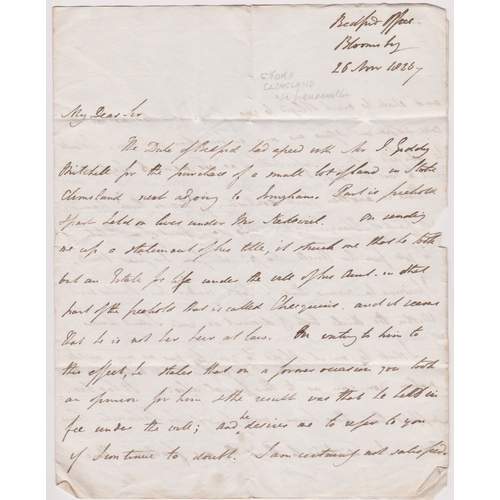 Bedford Office
Bloomsby
26 Nov 1826
STOKE
CLIMSLAND
Nr LAUNCESTON
My Dear Sir
The Duke of Bedford had agreed with Mr J. Giddy
Mitchell for the purchase of a small lot of land in Stoke
Clemsland next adjoing to Part is freehold
& part held on lives under Mr On sending
me up a statement of his title, it struck me that he took
but an Estate for life under the will of his Aunt in that
part of the freehold that is called Chequins. and it seems
that he is not her heir at law. On writing to him to
this effect, he states that on a former occasion you took
an opinion for him & the result was that he held in
fee under the will; and he desires me to refer to you
if I continue to doubt. I am certainly not satisfied.